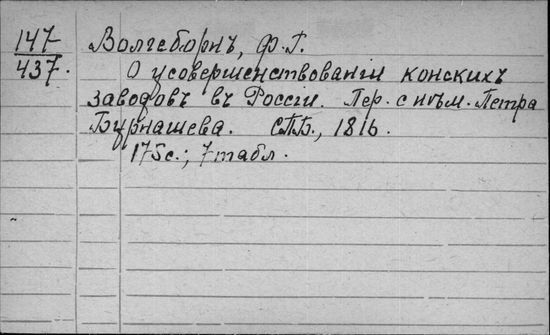 147
437.
Волгеборнъ, Ф. Г.
О усовершенствованіи конскихъ
заводовъ въ Россіи. Пер. с нѣм. Петра
Бурнашева. СПБ., 1816.
175 с.; 7 табл.